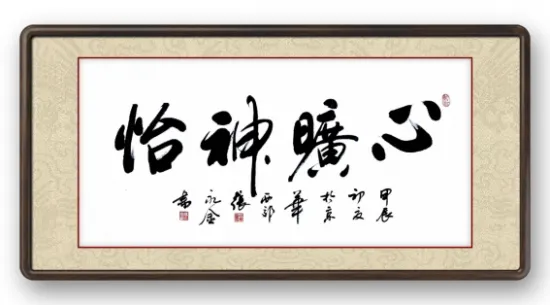 心曠神怡
甲辰
初夏
於京
華
西郊
張
永金
書